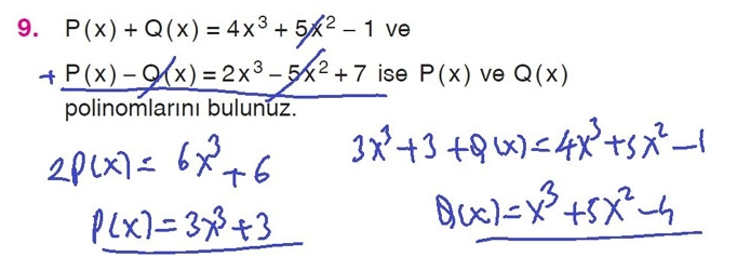 9. P(x) + Q(x) = 4x³ + 5x² – 1 ve
+ P(x) – Q(x) = 2x³ – 5x² + 7 ise P(x) ve Q(x)
polinomlarını bulunuz.
2P(x) = 6x³ + 6
P(x) = 3x³ + 3
3x³ + 3 + Q(x) = 4x³ + 5x² – 1
Q(x) = x³ + 5x² – 4